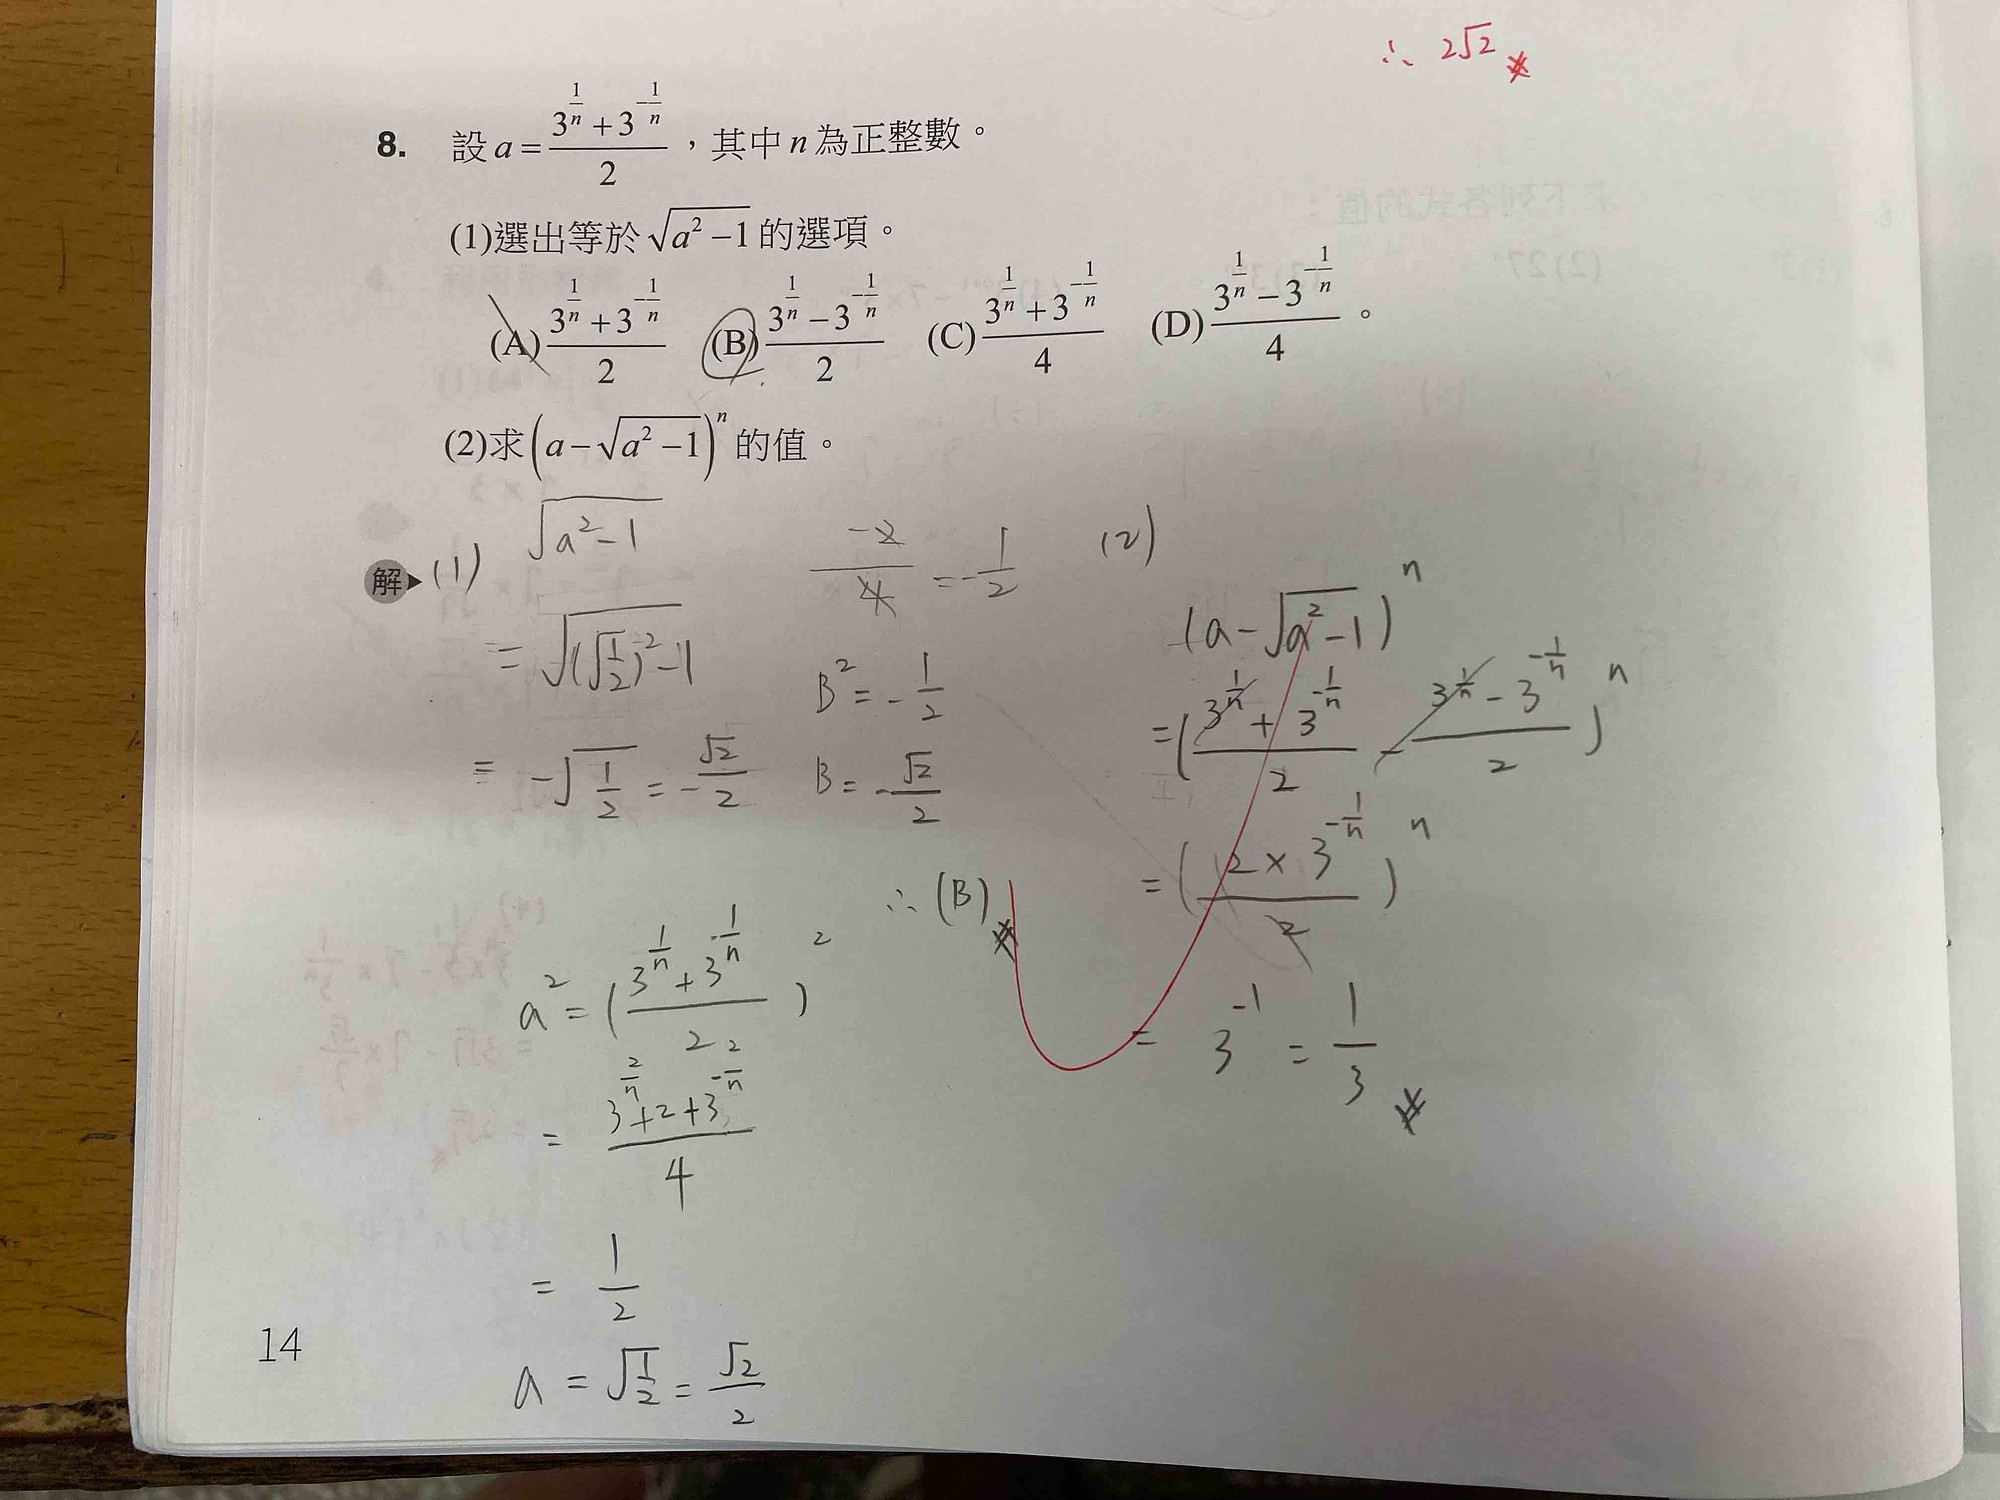 ∴ 2√2 ※
8. 設 a = (3^(1/n) + 3^(-1/n))/2 ，其中 n 為正整數。
(1)選出等於 √(a² − 1) 的選項。
(A) (3^(1/n) + 3^(-1/n))/2 (B) (3^(1/n) − 3^(-1/n))/2 (C) (3^(1/n) + 3^(-1/n))/4 (D) (3^(1/n) − 3^(-1/n))/4 。
(2)求 (a − √(a² − 1))^n 的值。
解 (1) √(a² − 1)
= √((√(1/2))² − 1)
= −√(1/2) = −√2/2
−2/4 = −1/2
B² = −1/2
B = −√2/2
∴ (B) ※
a² = ((3^(1/n) + 3^(-1/n))/2)²
= (3^(2/n) + 2 + 3^(-2/n))/4
= 1/2
a = √(1/2) = √2/2
(2)
(a − √(a² − 1))^n
= ((3^(1/n) + 3^(-1/n))/2 − (3^(1/n) − 3^(-1/n))/2)^n
= ((2 × 3^(-1/n))/2)^n
= 3^(-1) = 1/3 ※
14